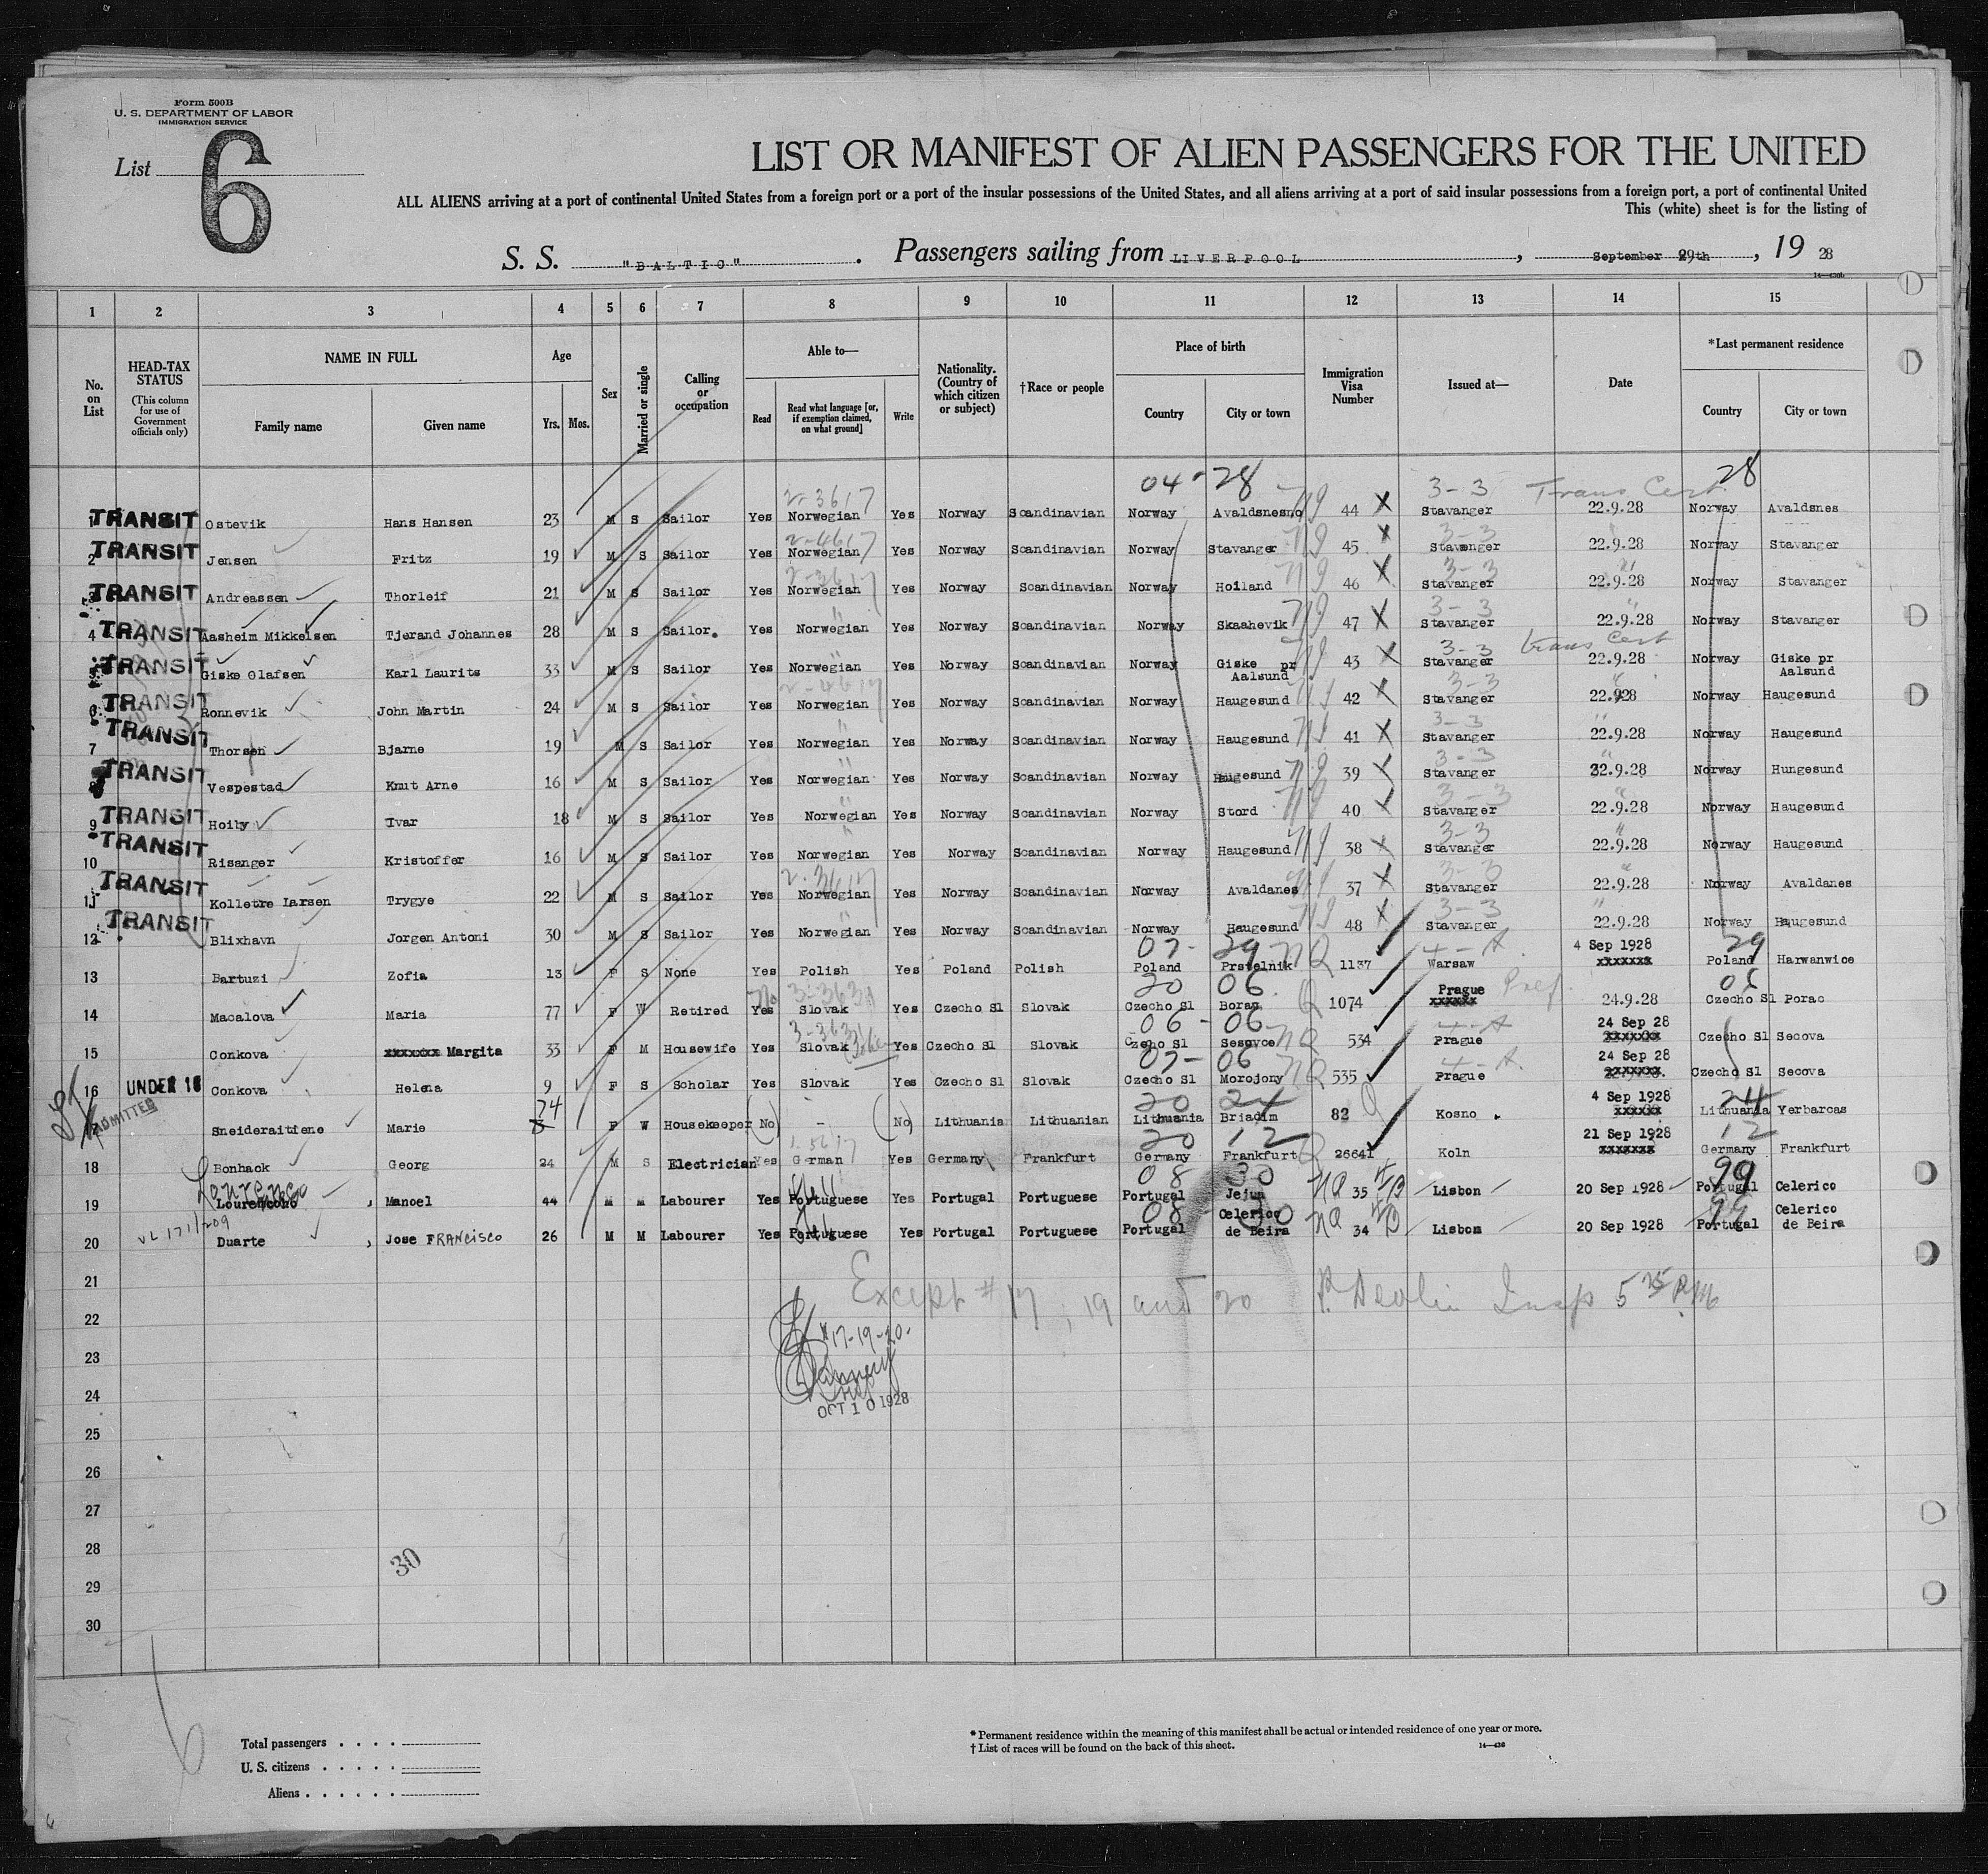 Form 500B
U. S. DEPARTMENT OF LABOR
IMMIGRATION SERVICE
List 6
LIST OR MANIFEST OF ALIEN PASSENGERS FOR THE UNITED
ALL ALIENS arriving at a port of continental United States from a foreign port or a port of the insular possessions of the United States, and all aliens arriving at a port of said insular possessions from a foreign port, a port of continental United
This (white) sheet is for the listing of
S. S. "BALTIC". Passengers sailing from LIVERPOOL, September 29th, 19 28
14—436b
1 2 3 4 5 6 7 8 9 10 11 12 13 14 15
No. on List
HEAD-TAX STATUS
(This column for use of Government officials only)
NAME IN FULL
Family name Given name
Age
Yrs. Mos.
Sex
Married or single
Calling or occupation
Able to—
Read Read what language [or, if exemption claimed, on what ground] Write
Nationality. (Country of which citizen or subject)
†Race or people
Place of birth
Country City or town
Immigration Visa Number
Issued at—
Date
*Last permanent residence
Country City or town
04-28 3-3 Trans Cert 28
2-3617
1 TRANSIT Ostevik Hans Hansen 23 M S Sailor Yes Norwegian Yes Norway Scandinavian Norway Avaldsnesno 44 X Stavanger 22.9.28 Norway Avaldsnes
2 TRANSIT Jensen Fritz 19 M S Sailor Yes Norwegian Yes Norway Scandinavian Norway Stavanger 45 X Stavenger 22.9.28 Norway Stavanger
3 TRANSIT Andreassen Thorleif 21 M S Sailor Yes Norwegian Yes Norway Scandinavian Norway Hoiland 46 X Stavanger 22.9.28 Norway Stavanger
4 TRANSIT Aasheim Mikkelsen Tjerand Johannes 28 M S Sailor. Yes Norwegian Yes Norway Scandinavian Norway Skaahevik 47 X Stavanger 22.9.28 Norway Stavanger
3-3 trans Cert
5 TRANSIT Giske Olafsen Karl Laurits 33 M S Sailor Yes Norwegian Yes Norway Scandinavian Norway Giske pr Aalsund 43 X Stavanger 22.9.28 Norway Giske pr Aalsund
6 TRANSIT Ronnevik John Martin 24 M S Sailor Yes Norwegian Yes Norway Scandinavian Norway Haugesund 42 X Stavanger 22.928 Norway Haugesund
7 TRANSIT Thorsen Bjarne 19 M S Sailor Yes Norwegian Yes Norway Scandinavian Norway Haugesund 41 X Stavanger 22.9.28 Norway Haugesund
8 TRANSIT Vespestad Knut Arne 16 M S Sailor Yes Norwegian Yes Norway Scandinavian Norway Haugesund 39 X Stavanger 22.9.28 Norway Hungesund
9 TRANSIT Hoily Ivar 18 M S Sailor Yes Norwegian Yes Norway Scandinavian Norway Stord 40 X Stavanger 22.9.28 Norway Haugesund
10 TRANSIT Risanger Kristoffer 16 M S Sailor Yes Norwegian Yes Norway Scandinavian Norway Haugesund 38 X Stavanger 22.9.28 Norway Haugesund
11 TRANSIT Kolletre Larsen Trygve 22 M S Sailor Yes Norwegian Yes Norway Scandinavian Norway Avaldanes 37 X Stavanger 22.9.28 Norway Avaldanes
12 TRANSIT Blixhavn Jorgen Antoni 30 M S Sailor Yes Norwegian Yes Norway Scandinavian Norway Haugesund 48 X Stavanger 22.9.28 Norway Haugesund
07-29 29
13 Bartuzi Zofia 13 F S None Yes Polish Yes Poland Polish Poland Prstelnik 1137 Warsaw 4 Sep 1928 xxxxxxx Poland Harwanwice
20 06 06
14 Macalova Maria 77 F W Retired Yes Slovak Yes Czecho Sl Slovak Czecho Sl Borag 1074 Prague xxxxxx 24.9.28 Czecho Sl Porac
06-06
15 Conkova xxxxxxx Margita 33 F M Housewife Yes Slovak Yes Czecho Sl Slovak Czeho Sl Sesovce 534 Prague 24 Sep 28 xxxxxxx Czecho Sl Secova
07-06
16 UNDER 16 Conkova Helena 9 F S Scholar Yes Slovak Yes Czecho Sl Slovak Czecho Sl Morojony 535 Prague 24 Sep 28 xxxxxxx Czecho Sl Secova
20 24 24
17 ADMITTED Sneideraitiene Marie 74 F W Housekeeper (No) - (No) Lithuania Lithuanian Lithuania Briadim 82 Kosno. 4 Sep 1928 xxxxxx Lithuania Yerbarcas
20 12 12
18 Bonhack Georg 24 M S Electrician Yes German Yes Germany Frankfurt Germany Frankfurt 26641 Koln 21 Sep 1928 xxxxxxx Germany Frankfurt
08 30 99
Lourenco
19 Lourencoho, Manoel 44 M M Labourer Yes Portuguese Yes Portugal Portuguese Portugal Jejum NQ 35 Lisbon 20 Sep 1928 Portugal Celerico
VL 171/209
08 30 99
20 Duarte, Jose FRANCISCO 26 M M Labourer Yes Portuguese Yes Portugal Portuguese Portugal Celerico de Beira NQ 34 Lisbon 20 Sep 1928 Portugal Celerico de Beira
21
Except #17, 19 and 20 Insp 5 25 PM
22
17-19-20.
23
24
OCT 10 1928
25
26
27
28
30
29
30
6
Total passengers
U. S. citizens
Aliens
* Permanent residence within the meaning of this manifest shall be actual or intended residence of one year or more.
† List of races will be found on the back of this sheet.
14—436
6